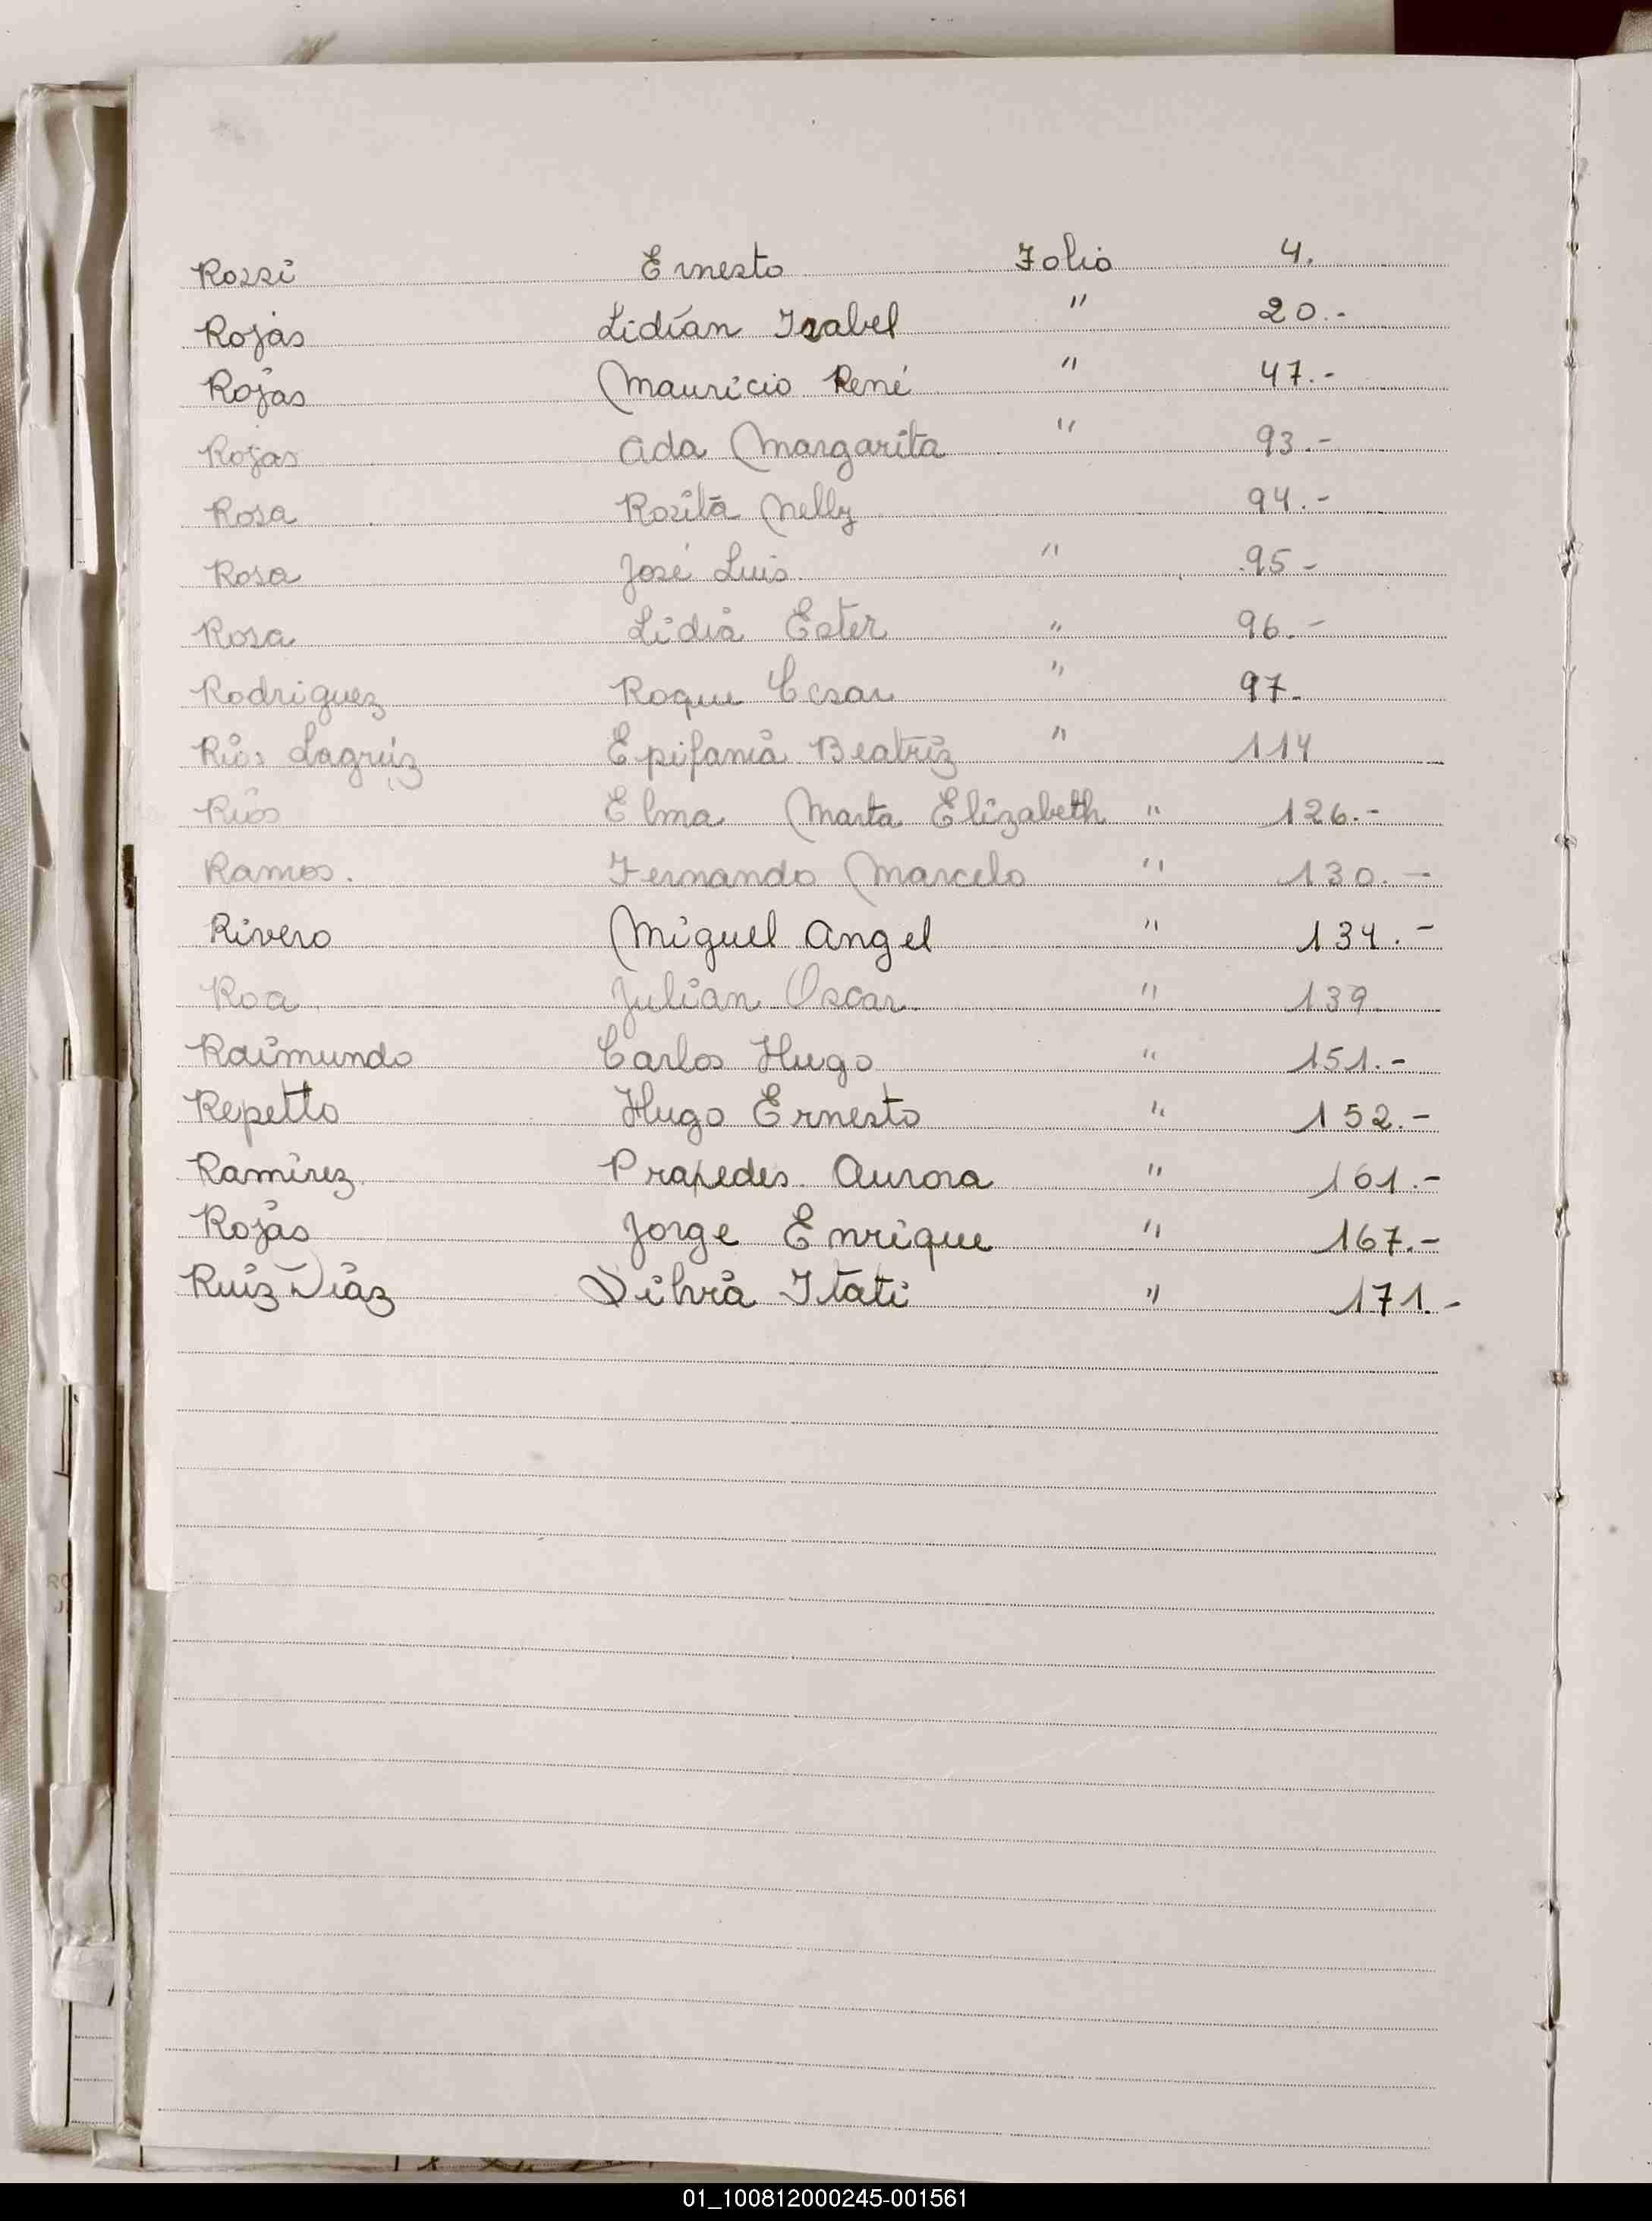 Rossi Ernesto Folio 4.
Rojas Lidían Isabel " 20.-
Rojas Mauricio René " 47.-
Rojas Ada Margarita " 93.-
Rosa Rosita Nelly 94.-
Rosa José Luis. " 95-
Rosa Lidia Ester " 96.-
Rodriguez Roque Cesar " 97.
Rios Epifania Beatriz " 114
Rios Elma Marta Elizabeth " 126.-
Ramos. Fernando Marcelo " 130.-
Rivero Miguel Angel " 134.-
Roa Julian Oscar. " 139.
Raimundo Carlos Hugo " 151.-
Repetto Hugo Ernesto " 152.-
Ramirez Praxedes. Aurora " 161.-
Rojas Jorge Enrique " 167.-
Ruiz Diaz Itati " 171.-
01_100812000245-001561